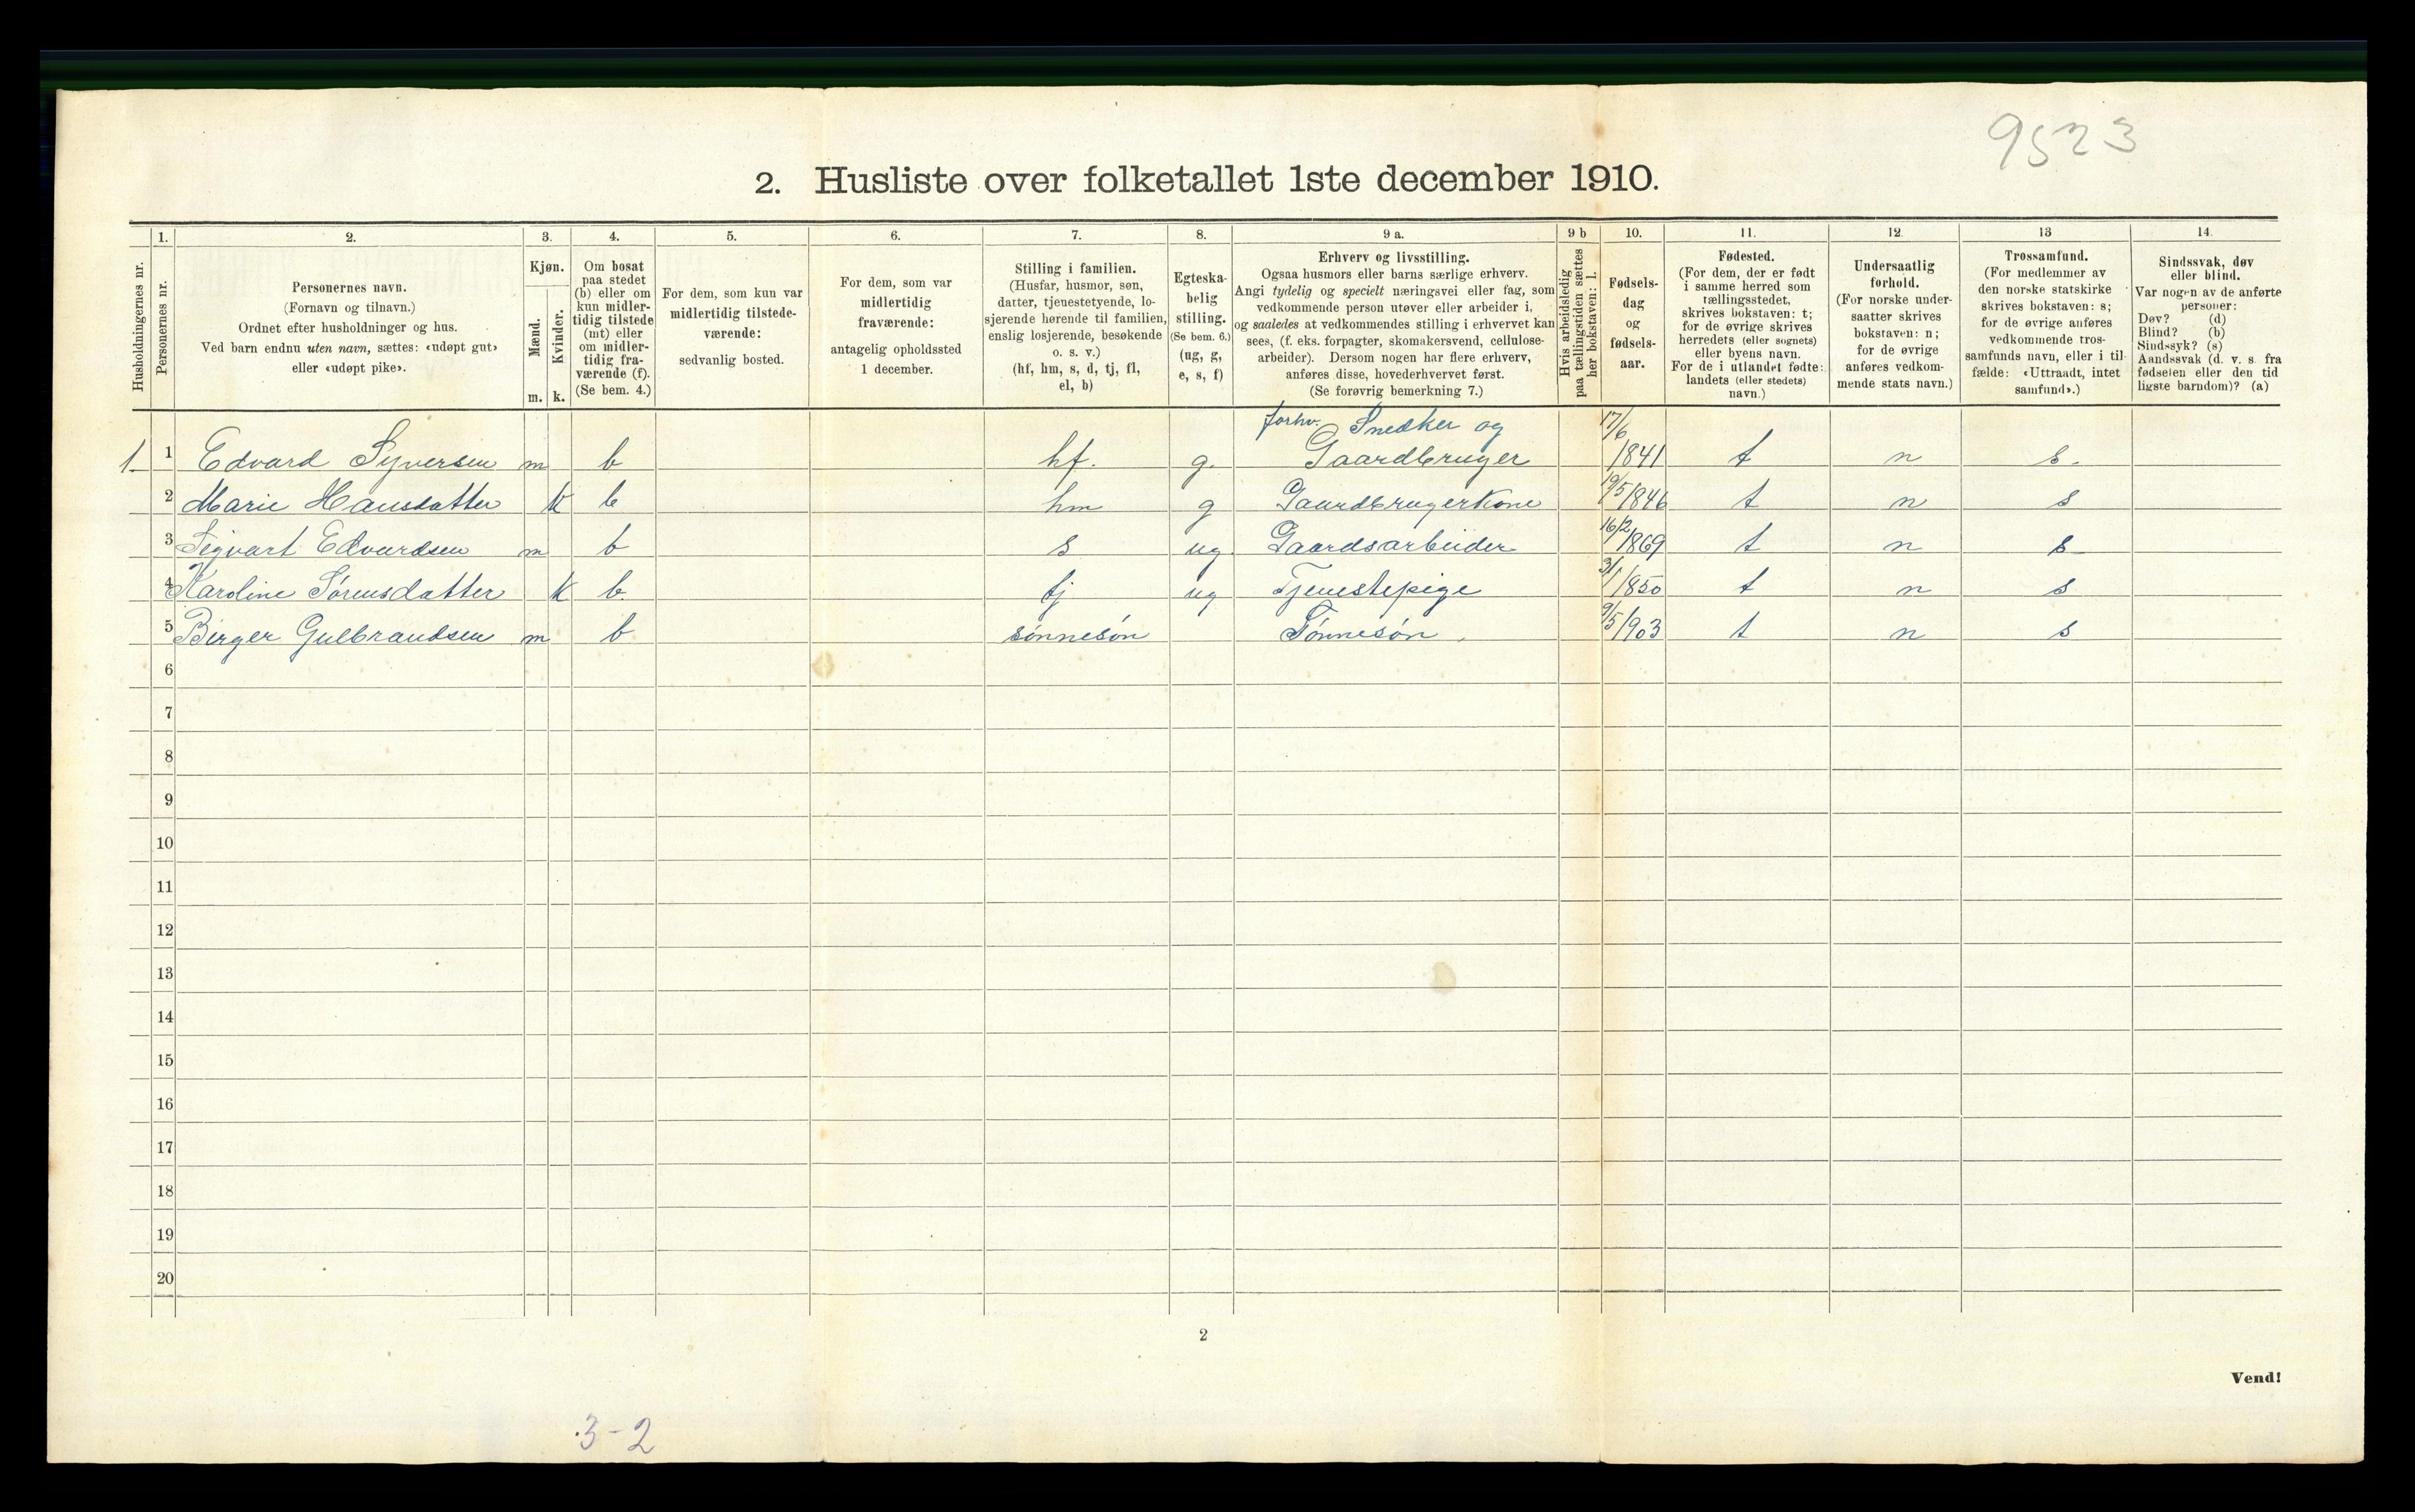 9523
2. Husliste over folketallet 1ste december 1910.
Husholdningernes nr.
1.
Personernes nr.
2.
Personernes navn.
(Fornavn og tilnavn.)
Ordnet efter husholdninger og hus.
Ved barn endnu uten navn, sættes: «udøpt gut»
eller «udøpt pike».
3.
Kjøn.
Mænd.
Kvinder.
m. k.
4.
Om bosat
paa stedet
(b) eller om
kun midler-
tidig tilstede
(mt) eller
om midler-
tidig fra-
værende (f).
(Se bem. 4.)
5.
For dem, som kun var
midlertidig tilstede-
værende:
sedvanlig bosted.
6.
For dem, som var
midlertidig
fraværende:
antagelig opholdssted
1 december.
7.
Stilling i familien.
(Husfar, husmor, søn,
datter, tjenestetyende, lo-
sjerende hørende til familien,
enslig losjerende, besøkende
o. s. v.)
(hf, hm, s, d, tj, fl,
el, b)
8.
Egteska-
belig
stilling.
(Se bem. 6.)
(ug, g,
e, s, f)
9 a.
Erhverv og livsstilling.
Ogsaa husmors eller barns særlige erhverv.
Angi tydelig og specielt næringsvei eller fag, som
vedkommende person utøver eller arbeider i,
og saaledes at vedkommendes stilling i erhvervet kan
sees, (f. eks. forpagter, skomakersvend, cellulose-
arbeider). Dersom nogen har flere erhverv,
anføres disse, hovederhvervet først.
(Se forøvrig bemerkning 7.)
9 b
Hvis arbeidsledig
paa tællingstiden sættes
her bokstaven: l.
10.
Fødsels-
dag
og
fødsels-
aar.
11.
Fødested.
(For dem, der er født
i samme herred som
tællingsstedet,
skrives bokstaven: t;
for de øvrige skrives
herredets (eller sognets)
eller byens navn.
For de i utlandet fødte:
landets (eller stedets)
navn.)
12.
Undersaatlig
forhold.
(For norske under-
saatter skrives
bokstaven: n;
for de øvrige
anføres vedkom-
mende stats navn.)
13
Trossamfund.
(For medlemmer av
den norske statskirke
skrives bokstaven: s;
for de øvrige anføres
vedkommende tros-
samfunds navn, eller i til-
fælde: «Uttraadt, intet
samfund».)
14.
Sindssvak, døv
eller blind.
Var nogen av de anførte
personer:
Døv? (d)
Blind? (b)
Sindssyk? (s)
Aandssvak (d. v. s. fra
fødselen eller den tid-
ligste barndom)? (a)
forhv. Snedker og 17/6
1. 1 Edvard Syversen m b hf. g. Gaardbruger 1841 t n s.
2 Marie Hansdatter k b hm g Gaardbrugerkone 19/5 1846 t n s
3 Sigvart Edvardsen m b s ug Gaardsarbeider 16/2 1869 t n s
4 Karoline Sørensdatter k b tj ug Tjenestepige 3/1 1850 t n s
5 Birger Gulbrandsen m b sønnesøn Sønnesøn 9/5 1903 t n s
6
7
8
9
10
11
12
13
14
15
16
17
18
19
20
2
Vend!
3-2